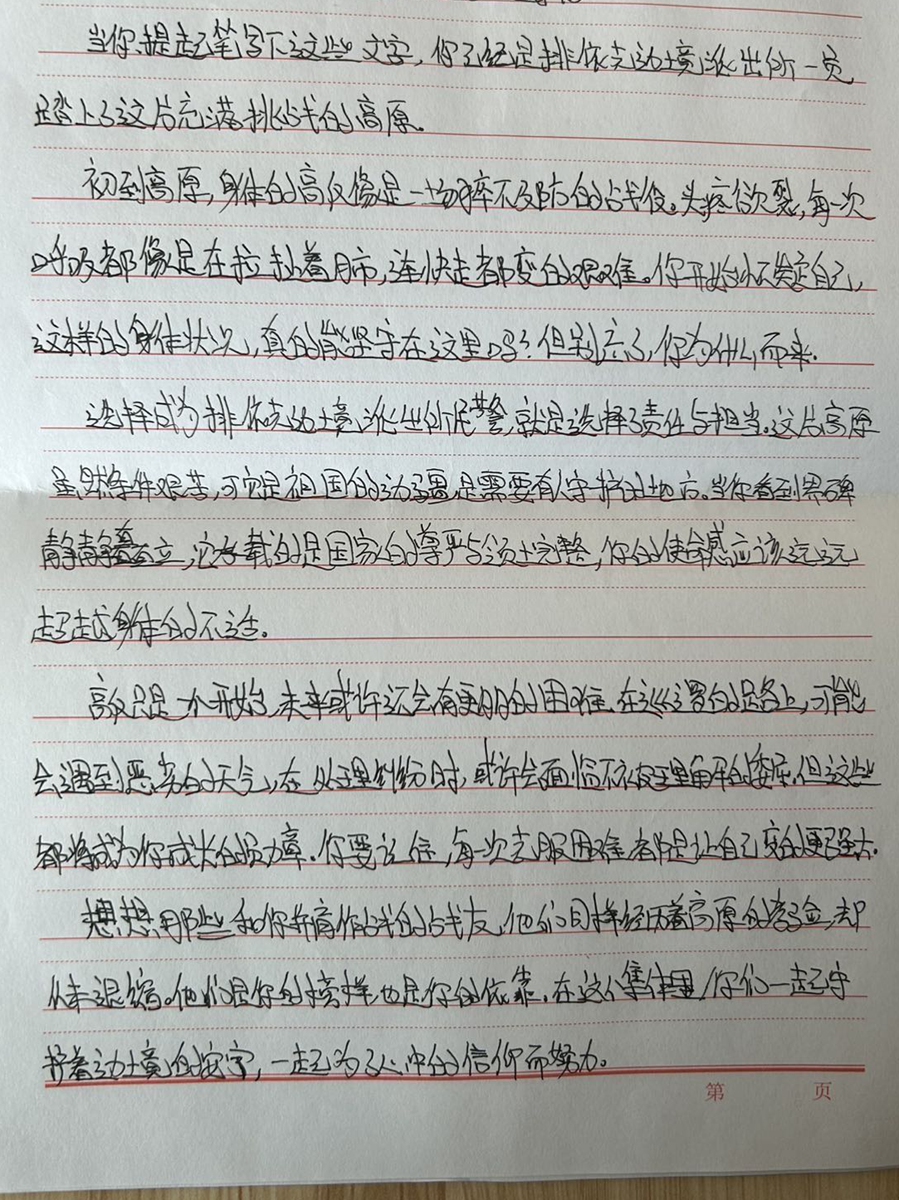 当你提起笔写下这些文字，你已经是排依克边境派出所一员
踏上了这片充满挑战的高原。
初到高原，身体的高反像是一场猝不及防的战役。头疼欲裂，每一次
呼吸都像是在拉扯着肺，连快走都变的艰难。你开始怀疑自己，
这样的身体状况，真的能坚守在这里吗？但别忘了，你为什么而来.
选择成为排依克边境派出所民警，就是选择了责任与担当。这片高原
虽然条件艰苦，可它是祖国的边疆，是需要有人守护的地方。当你看到界碑
静静矗立，它承载的是国家的尊严与领土完整，你的使命感应该远远
超越身体的不适。
高反只是一个开始，未来或许还会有更多的困难，在巡逻的路上，可能
会遇到恶劣的天气，在处理纠纷时，或许会面临不被理解的委屈，但这些
都将成为你成长的勋章。你要记住，每一次克服困难都是让自己变的更强大.
想想那些和你并肩作战的战友，他们同样经历着高原的考验，却
从未退缩。他们是你的榜样也是你的依靠，在这个集体里，你们一起守
护着边境的安宁，一起为了心中的信仰而努力。
第 页